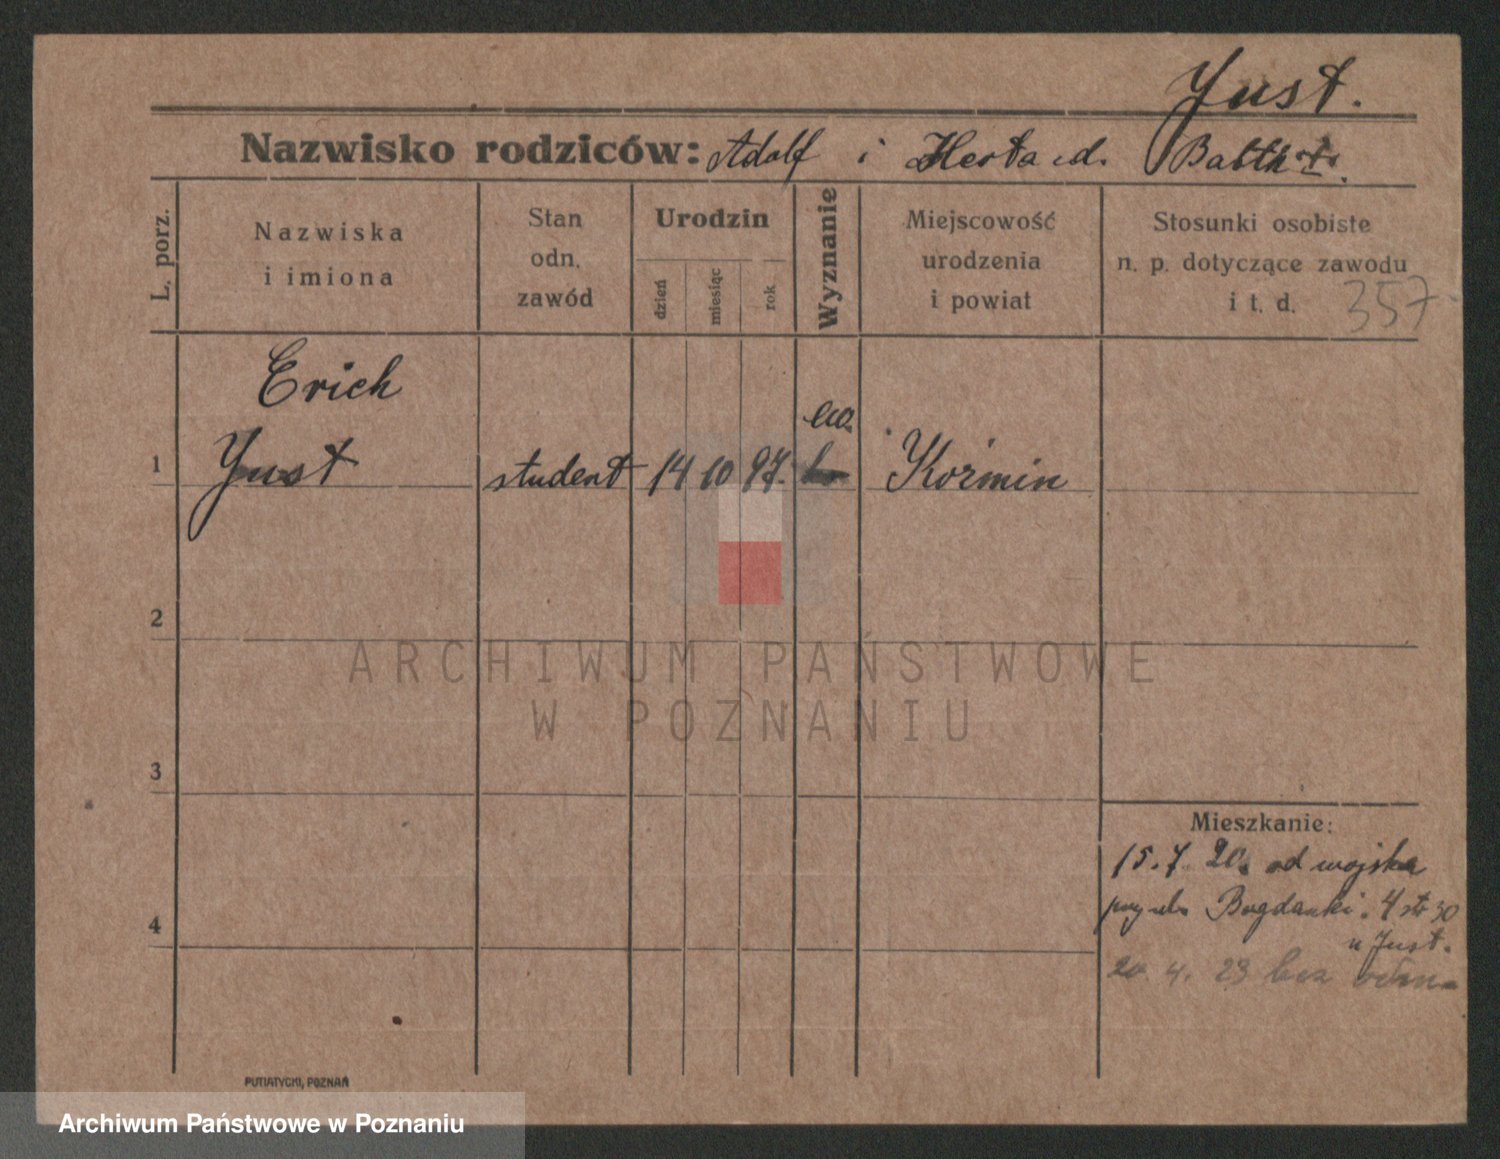 Just.
Nazwisko rodziców: Adolf i Herta d.
L. porz.
Nazwiska
i imiona
Stan
odn.
zawód
Urodzin
dzień
miesiąc
rok
Wyznanie
Miejscowość
urodzenia
i powiat
Stosunki osobiste
n. p. dotyczące zawodu
i t. d.
357
Erich
ew.
1 Just student 14 10 97. Koźmin
2
3
4
Mieszkanie:
15. 7. 20. od wojska
Bogdanki 4 str 30
u Just.
20. 4. 23 bez
PUTIATYCKI, POZNAŃ
ARCHIWUM PAŃSTWOWE
W POZNANIU
Archiwum Państwowe w Poznaniu